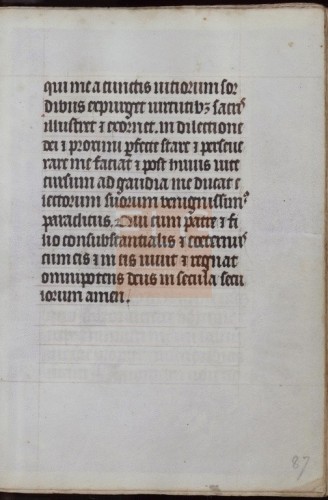 qui me a cunctis uitiorum sor
dibus expurget uirtutibꝫ sacrꝭ
illustret ⁊ exornet. in dilectione
dei ⁊ proximi ꝑfecte stare ⁊ perseue
rare me faciat ⁊ post huius uite
cursum ad gaudia me ducat e
lectorum suorum benignissimꝰ
paraclitus. Qui cum patre ⁊ fi
lio consubstantialis ⁊ coeternꝰ
cum eis ⁊ in eis uiuit ⁊ regnat
omnipotens deus in secula secu
lorum amen.
87